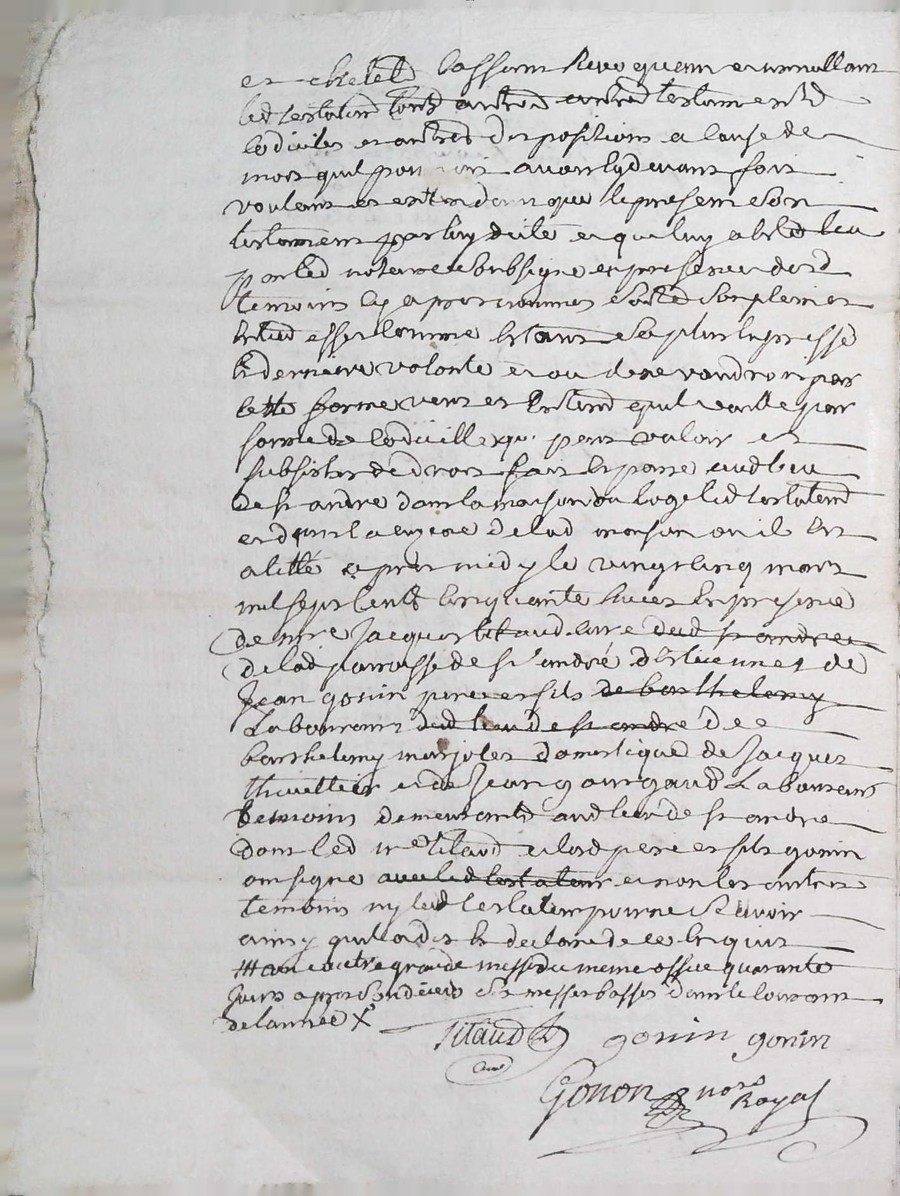 et revoquant et annullant
led testateur tous autres testaments
codiciles et autres dispositions a cause de
mort quil pou avoir cy devant fait
voulant et entendant que le present son
testament par luy dicté et que luy a été leu
par led notaire soubsigné en presence desd
temoins cy apres nommés sorte son plein et
entier effet comme étant sa plus expresse
et derniere volonté et ou il ne vaudroit par
cette forme veut et entend quil vaille par
forme de codicille qui peut valoir et
subsister de droit fait et passé aud lieu
de st andré dans la maison ou loge led testateur
et dans la de lad maison ou il est
alitté apres midy le vingt cinq mars
mil sept cents cinquante huit en presence
de mre Jacques titaud curé dud st andre
de lad parroisse de st andré de
Jean gonin pere et fils de barthelemy
Laboureurs dud lieu de st andre de
barthelemy marjolet domestique de Jacques
thuillier et de Jean gourgaud Laboureurs
temoins demeurants aud lieu de st andre
dont led mre titaud et lesd pere et fils gonin
ont signé avec led testateur et non les autres
temoins ny led testateur pour ne scavoir
ainsy quil a dit et declaré de ce enquis
une autre grande messe du meme office quarante
jours apres son décés messes basses dans le courant
de lannée X
Titaud gonin gonin
curé
Gonon nore
Royal